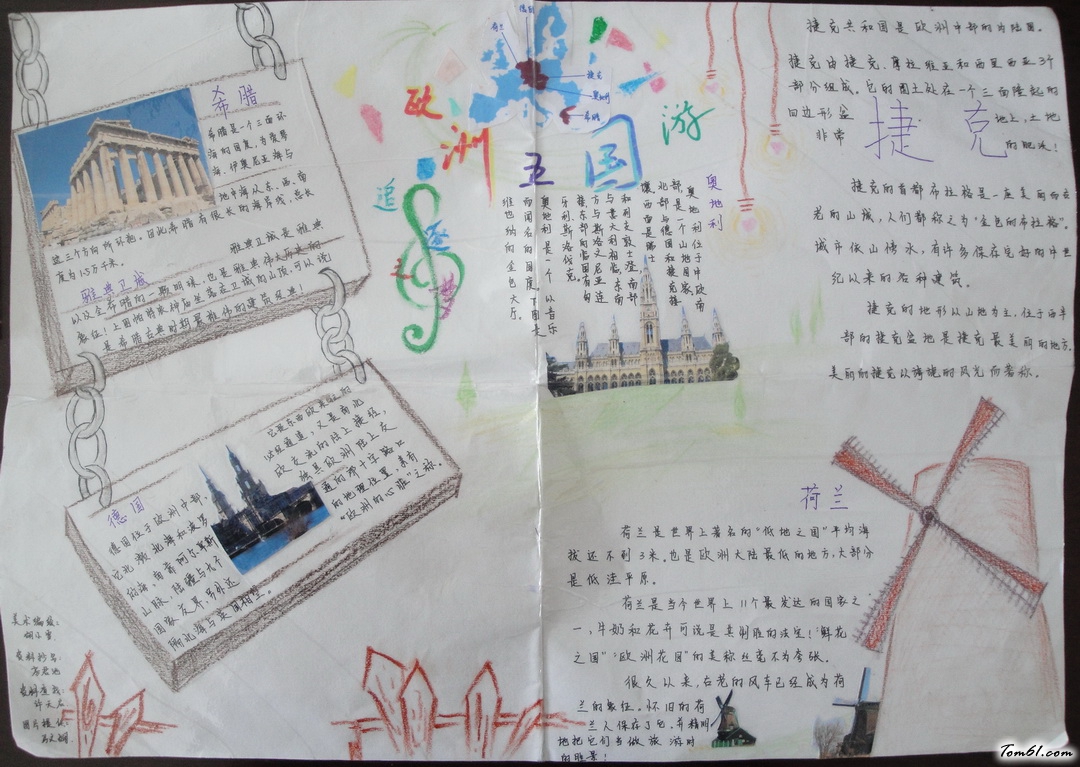 希腊
希腊是一个三面环
海的国度,为爱琴
海、伊奥尼亚海与
地中海从东、西、南
这三个方向所环抱。因此希腊有很长的海岸线,总长
度为1.5万千米。
雅典卫城
雅典卫城是雅典
以及全希腊的一颗明珠,也是雅典伟大历史的
是希腊古典时期最雄伟的建筑
德国
德国位于欧洲中部,
它北濒北海和波罗
的海,南靠阿尔卑斯
山脉,陆疆与九个
国家友界。另外还
隔北海与英国相望。
以经通道,又是南北
欧交流的陆上捷径,
独具欧洲陆上交
通的那十字路口
的地理位置,素有
“欧洲的心脏”之称。
美术编辑:
资料抄写:
资料查找:
许天石
图片提供:
追
逐
欧
洲
五
国
游
德国
捷克
奥地利
希腊
奥地利
奥地利位于中欧南
部,是一个山地国家,
北部与德国和捷克接
壤,西面是瑞士
和列支敦士登,南部
与意大利相临,东南
方与斯洛文尼亚连
接,东部的临国有匈
牙利斯洛伐克。
奥地利是一个以音乐
而闻名的国度,下图是
维也纳的金色大厅。
捷克
捷克共和国是欧洲中部的内陆国。
捷克由捷克、摩拉维亚和西里西亚3个
部分组成。它的国土处在一个三面隆起的
四边形盆地上,土地
非常的肥沃!
捷克的首都布拉格是一座美丽而古
老的山城,人们都称之为“金色的布拉格”。
城市依山傍水,有许多保存完好的中世
纪以来的各种建筑。
捷克的地形以山地为主,位于西半
部的捷克盆地是捷克最美丽的地方,
美丽的捷克以旖旎的风光而著称。
荷兰
荷兰是世界上著名的“低地之国”平均海
拔还不到3米。也是欧洲大陆最低的地方,大部分
是低洼平原。
荷兰是当今世界上11个最发达的国家之
一,牛奶和花卉可说是其制胜的法宝!“鲜花
之国”“欧洲花园”的美称丝毫不为夸张。
很久以来,古老的风车已经成为荷
兰的象征。怀旧的荷
兰人保存了它,并精明
地把它们当做旅游时
的胜景!
Tom61.com